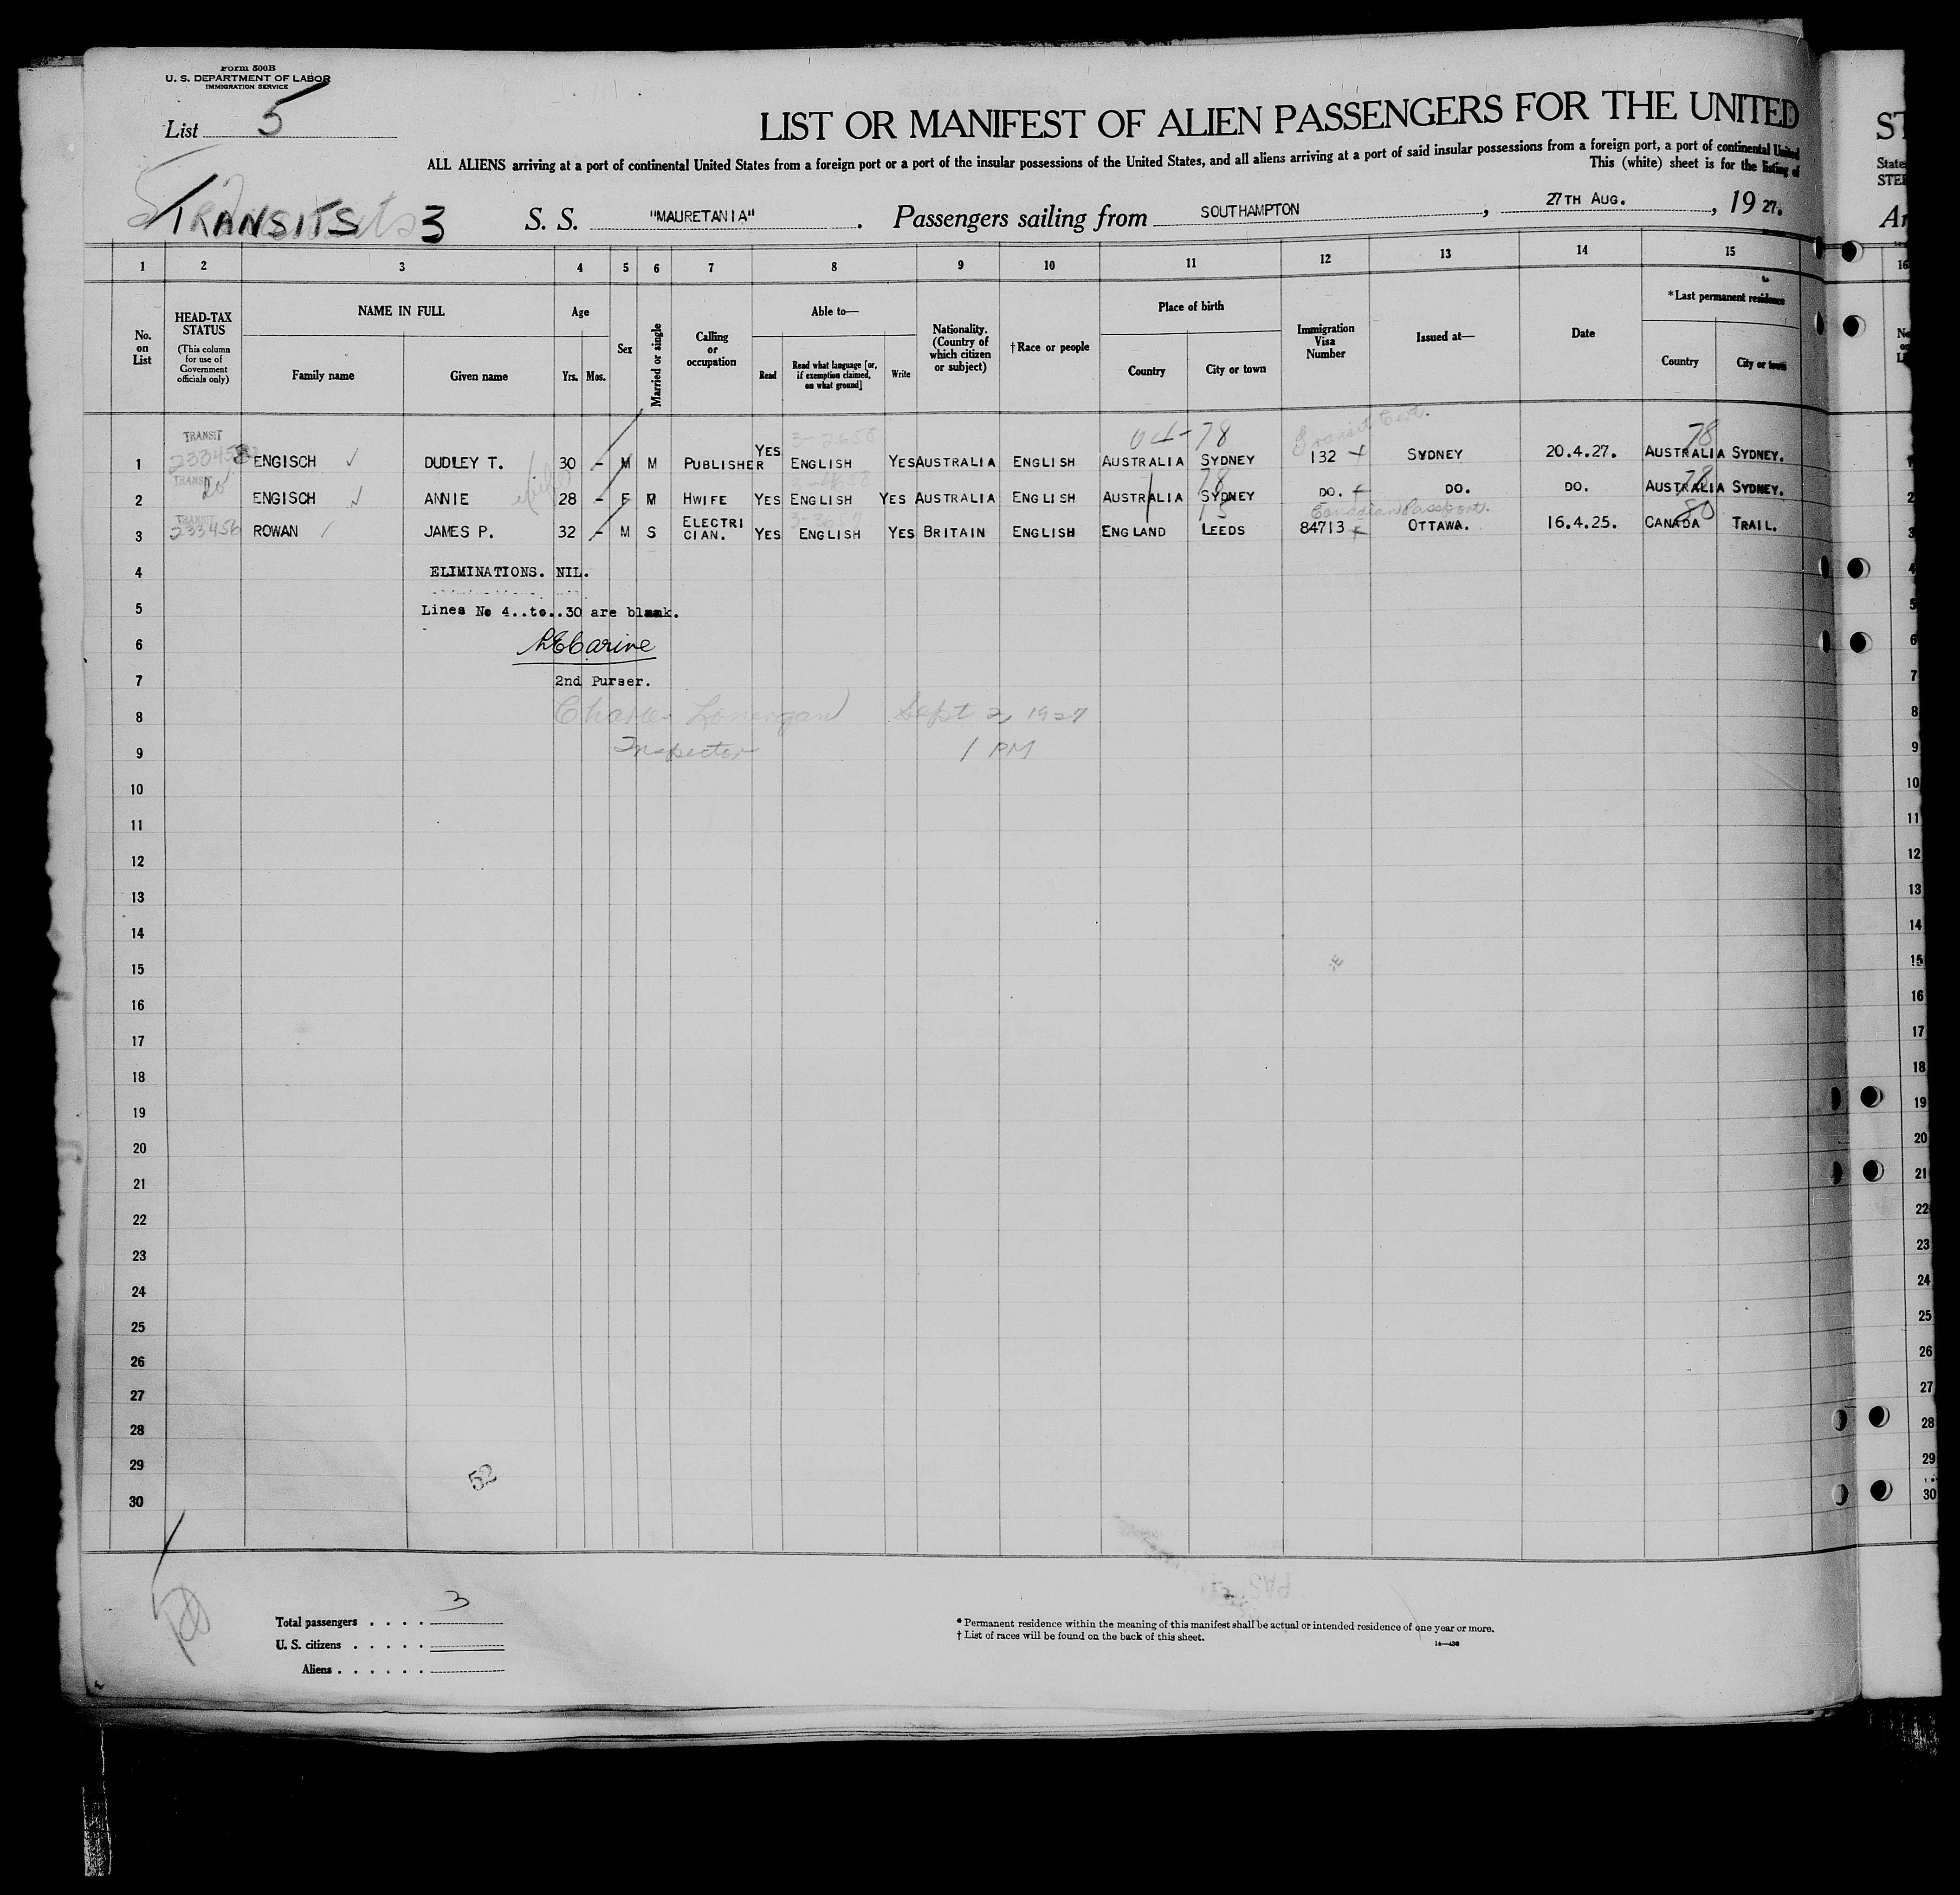 Form 500B
U. S. DEPARTMENT OF LABOR
IMMIGRATION SERVICE
List 5
LIST OR MANIFEST OF ALIEN PASSENGERS FOR THE UNITED
ALL ALIENS arriving at a port of continental United States from a foreign port or a port of the insular possessions of the United States, and all aliens arriving at a port of said insular possessions from a foreign port, a port of continental United
This (white) sheet is for the listing of
TRANSITS 3 S. S. "MAURETANIA". Passengers sailing from SOUTHAMPTON, 27TH AUG., 1927.
1 2 3 4 5 6 7 8 9 10 11 12 13 14 15
No. on List
HEAD-TAX STATUS
(This column for use of Government officials only)
NAME IN FULL
Family name Given name
Age
Yrs. Mos.
Sex
Married or single
Calling or occupation
Able to—
Read Read what language [or, if exemption claimed, on what ground] Write
Nationality. (Country of which citizen or subject)
†Race or people
Place of birth
Country City or town
Immigration Visa Number
Issued at—
Date
*Last permanent residence
Country City or town
04-78 Transit Cert. 78
TRANSIT
1 ENGISCH DUDLEY T. 30 - M M PUBLISHER YES ENGLISH YES AUSTRALIA ENGLISH AUSTRALIA SYDNEY 132 SYDNEY 20.4.27. AUSTRALIA SYDNEY.
TRANSIT 78 78
2 ENGISCH ANNIE 28 - F M HWIFE YES ENGLISH YES AUSTRALIA ENGLISH AUSTRALIA SYDNEY DO. DO. DO. AUSTRALIA SYDNEY.
TRANSIT 15 Canadian Passport. 80
3 233456 ROWAN JAMES P. 32 - M S ELECTRI CIAN. YES ENGLISH YES BRITAIN ENGLISH ENGLAND LEEDS 84713 OTTAWA. 16.4.25. CANADA TRAIL.
4 ELIMINATIONS. NIL.
5 Lines No 4..to..30 are blank.
6
7 2nd Purser.
8 Charles Lonergan Sept 2, 1927
9 Inspector 1 PM
10
11
12
13
14
15
16
17
18
19
20
21
22
23
24
25
26
27
28
29
30
52
Total passengers . . . . 3
U. S. citizens . . . . .
Aliens . . . . . .
* Permanent residence within the meaning of this manifest shall be actual or intended residence of one year or more.
† List of races will be found on the back of this sheet.